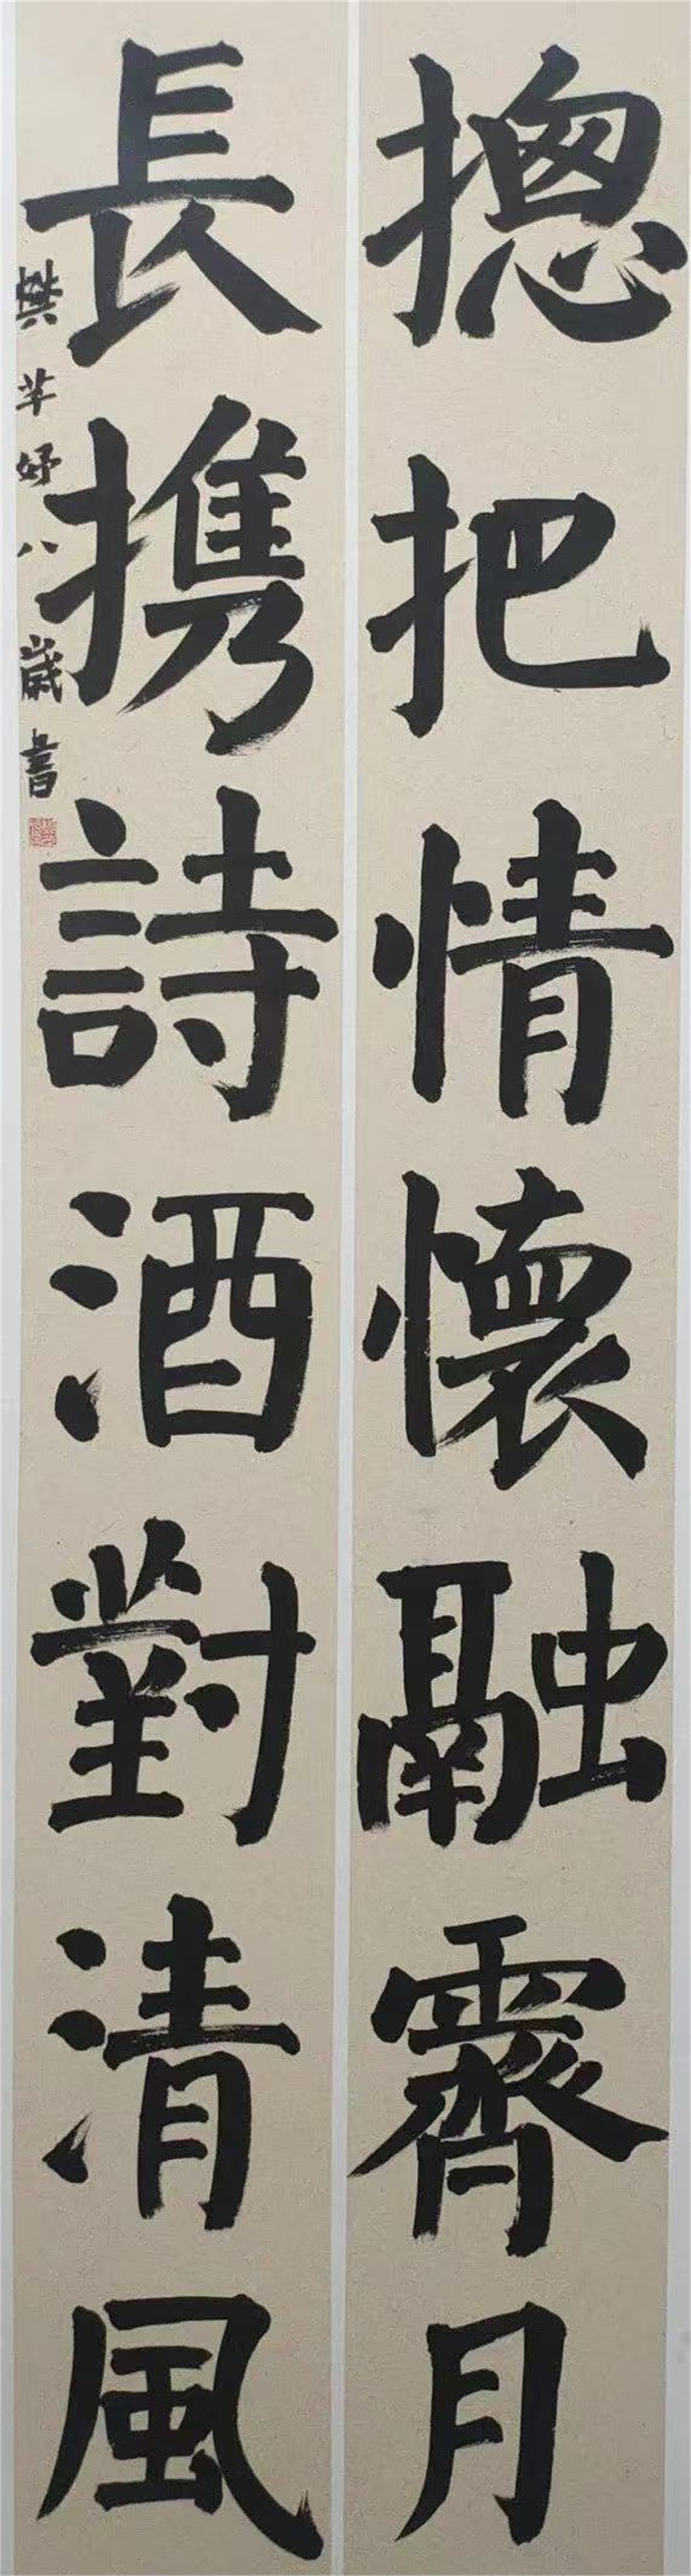 摠把情懷融霽月
長携詩酒對清風
樊芊妤八歲書